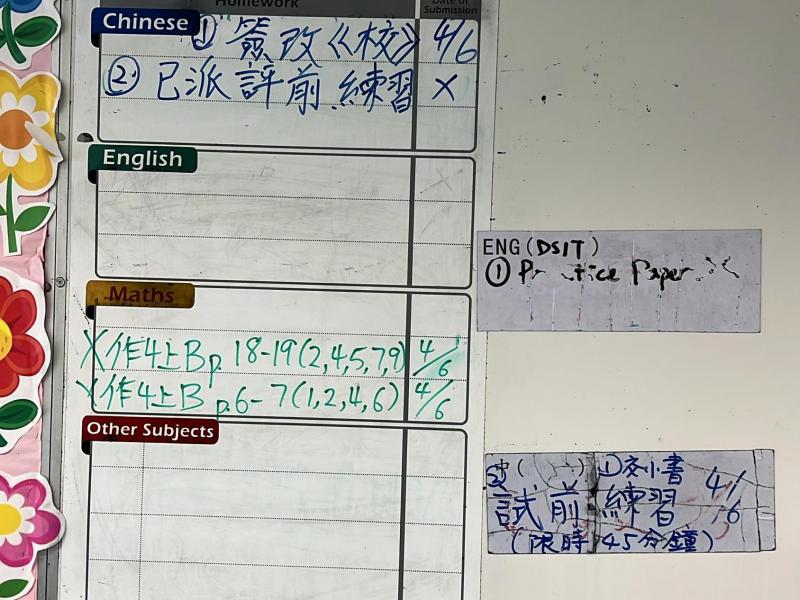 Homework
Date of Submission
Chinese
① 簽改《校》 4/6
② 已派評前練習 X
English
Maths
X作4上B p.18-19(2,4,5,7,9) 4/6
作4上B p.6-7(1,2,4,6) 4/6
Other Subjects
ENG(DSIT)
① Practice Paper
① 交小書
試前練習 4/6
(限時45分鐘)